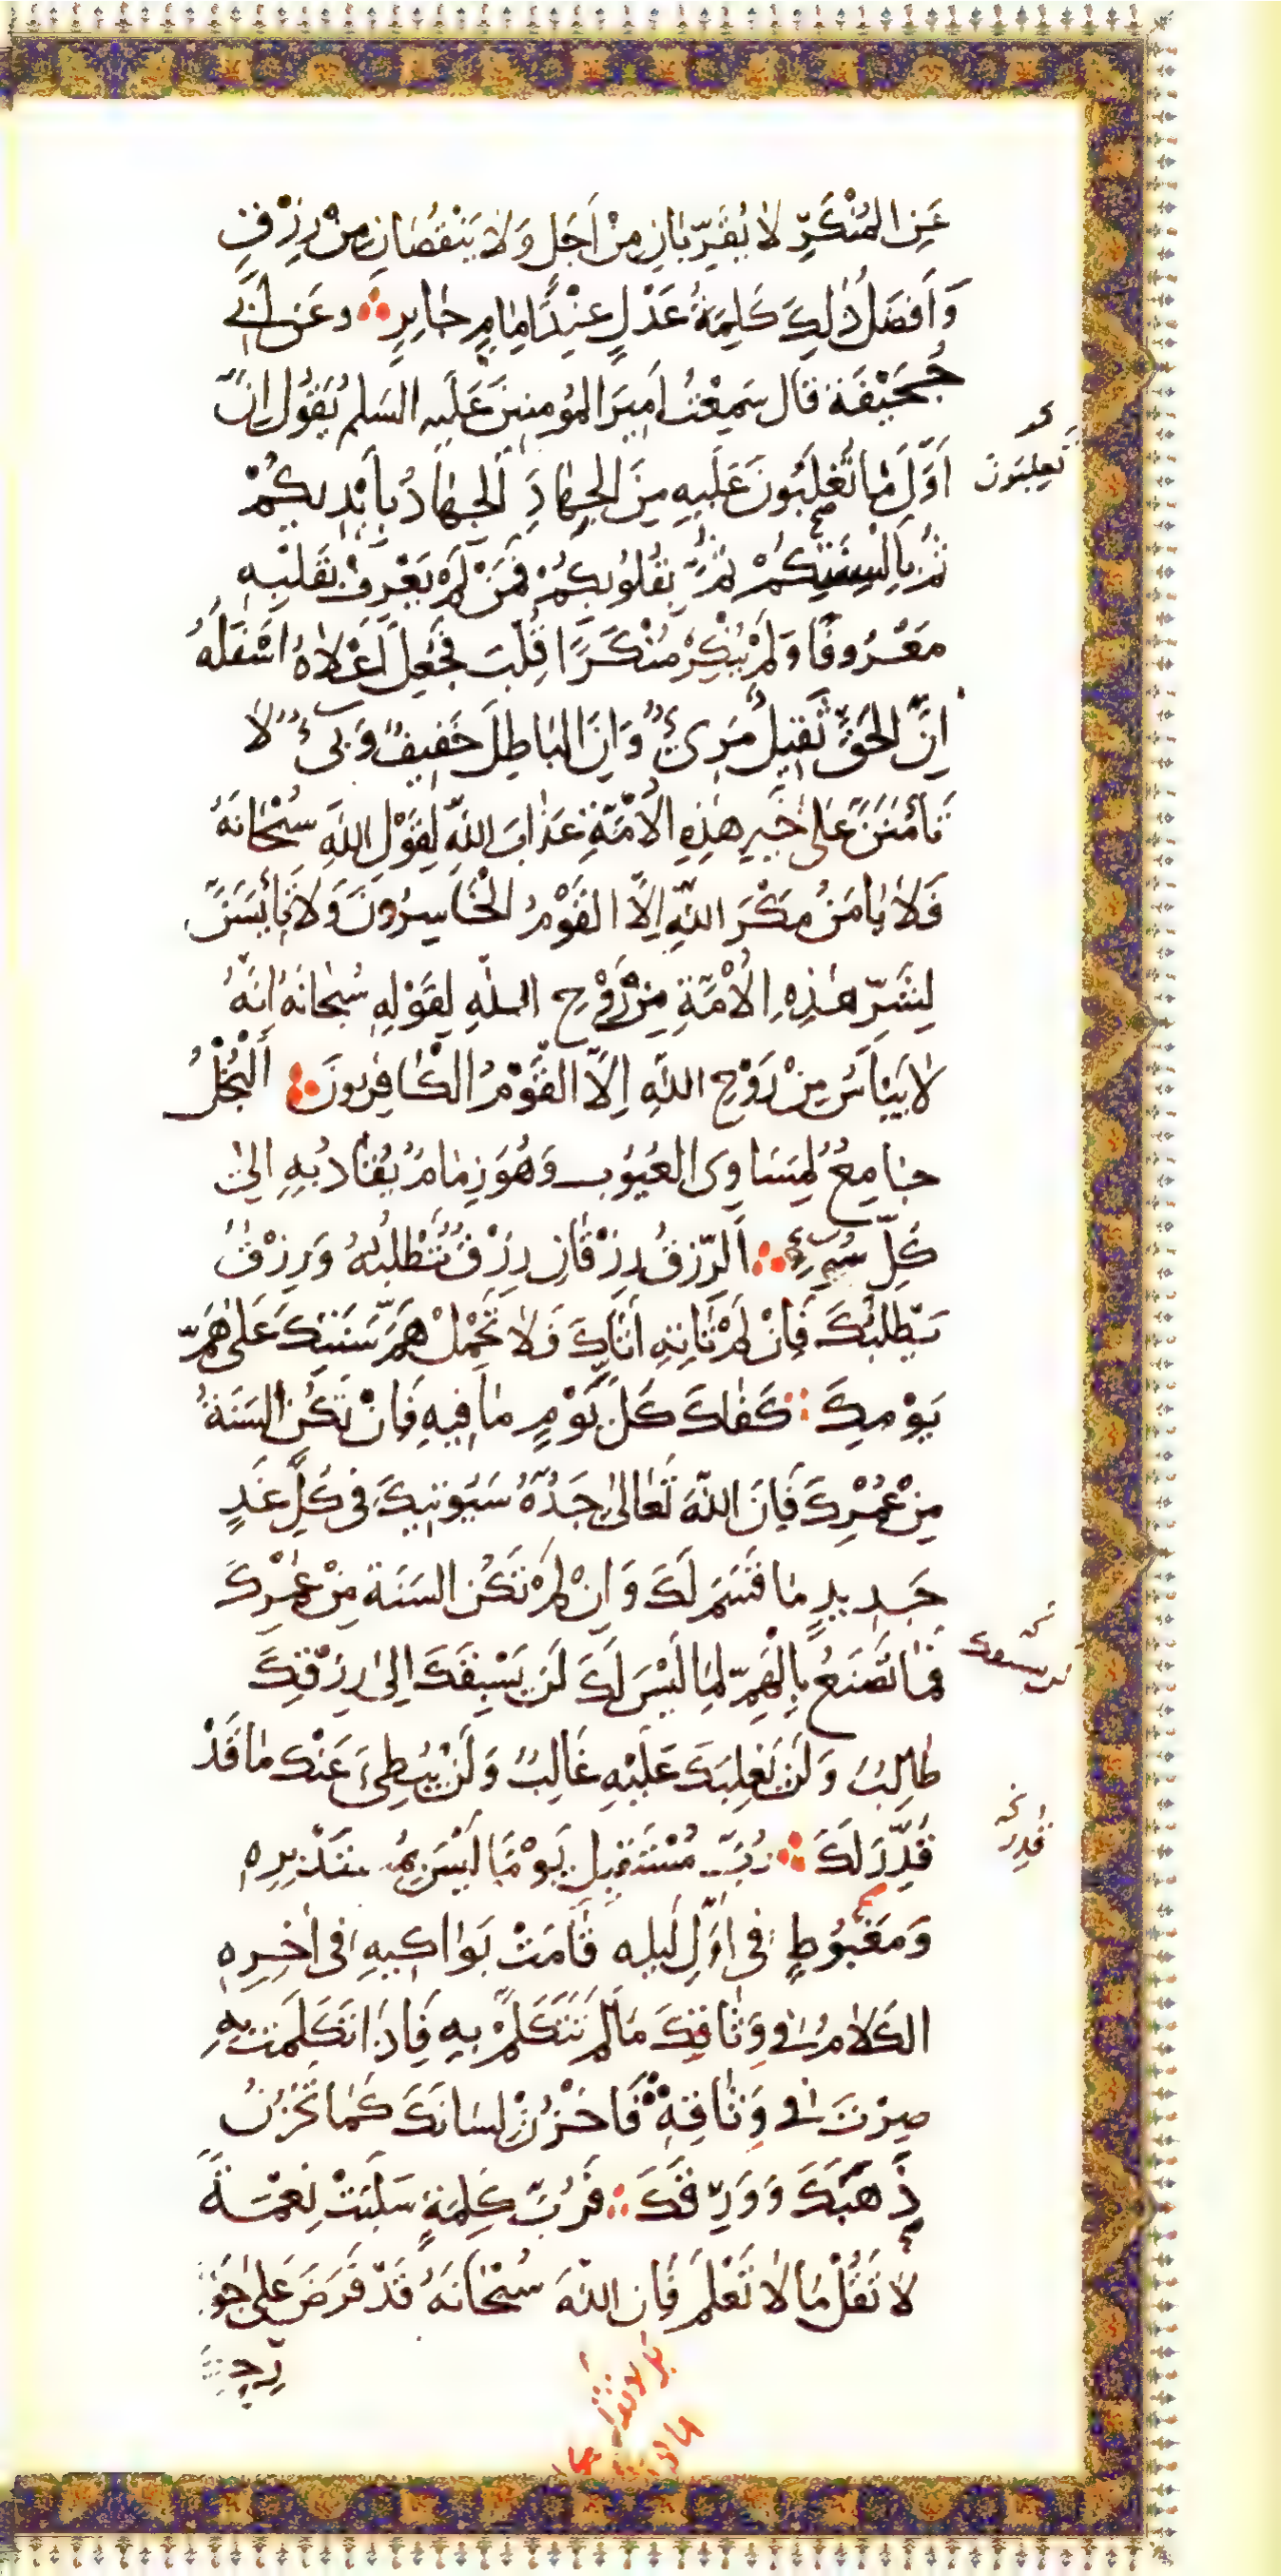 عَنِ المُنْكَرِّ لاٰ يُقَرِّبٰانِ مِنْ اَجَلٍ وَلاٰ يَنْقُصٰانِ مِنْ رِزْقٍ
وَاَفضَلُ ذٰلِكَ كَلِمَةُ عَدْلٍ عِنْدَ اِمٰامٍ جٰايِرٍ وعَن اَبي
جُحَيْفَة قال سَمِعْتُ اَمِيرَ المُؤمنِينَ عَلَيهِ السَلم يَقُولُ اِنَّ
اَوَّلَ مٰا تُغلَبُونَ عَلَيهِ مِنَ الجِهٰادِ اَلجِهٰادُ بِاَيْدِيكُمْ
ثُمَّ بِاَلْسِنَتِكُمْ ثُمَّ بِقُلُوبِكُمْ فَمَنْ لَمْ يَعْرِفْ بِقَلْبِهِ
مَعْرُوفًا وَلَمْ يُنْكِرْ مُنْكَرًا قُلِبَ فَجُعِلَ اَعْلاٰهُ اَسْفَلَهُ
اِنَّ الحَقَّ ثَقيلٌ مَرِىءٌ وَاِنَّ البَاطِلَ خَفِيفٌ وَبِىءٌ لاٰ
تَأمَنَنَّ عَلىٰ خَيرِ هٰذِهِ الاُمَّةِ عَذابَ اللهِ لِقَوْلِ اللهِ سُبْحٰانَهُ
فَلاٰ يٰامَنُ مَكْرَ اللهِ اِلاَّ القَوْمُ الْخٰاسِرُونَ وَلاٰ تَأيَسَنَّ
لِشَرِّ هٰذِهِ الاُمَّةِ مِنْ رَوْحِ اللهِ لِقَوْلِهِ سُبحٰانَهُ اِنَّهُ
لاٰ يَيْاَسُ مِنْ رَوْحِ اللهِ اِلاَّ القَوْمُ الْكٰافِرُونَ اَلْبُخْلُ
جٰامِعٌ لِمَسَاوِى العُيُوب وَهُوَ زِمٰامٌ يُقٰادُ بِهِ اِلىٰ
كُلِّ سُوءٍ اَلرِّزقُ رِزْقٰانِ رِزْقٌ تَطْلُبُهُ وَرِزْقٌ
يَطلُبُكَ فَاِنْ لَمْ تَاتِهِ اَتٰاكَ فَلاٰ تَحْمِلْ هَمَّ سَنَتِكَ عَلىٰ هَمِّ
يَوْمِكَ كَفٰاكَ كُلَّ يَوْمٍ مٰا فِيهِ فَاِنْ تَكُنِ السَنَةُ
مِنْ عُمْرِكَ فَاِنَّ اللهَ تَعٰالىٰ جَدُّهُ سَيُوتيكَ فى كُلِّ غَدٍ
جَدِيدٍ مٰا قَسَمَ لَكَ وَاِنْ لَمْ تَكُن السَنَة مِنْ عُمْرِكَ
فَمٰا تَصْنَعُ بِالْهَمِّ لِمٰا لَيْسَ لَكَ لَن يَسْبِقَكَ اِلىٰ رِزْقِكَ
طٰالِبٌ وَلَنْ يَغْلِبَكَ عَلَيْهِ غٰالِبٌ وَلَنْ يُبْطِئَ عَنْكَ مٰا قَدْ
قُدِّرَ لَكَ رُبَّ مُسْتَقبِلٍ يَوْمًا لَيْسَ بِمُستَدْبِرِهِ
وَمَغْبُوطٍ فى اَوَّلِ لَيلِهِ قٰامَتْ بَوٰاكِيهِ فى اٰخِرِهِ
الكَلاٰمُ فى وِثٰاقِكَ مَا لَم تَتَكَلَّمْ بِهِ فَاِذَا تَكَلَّمتَ بِهِ
صِرْتَ فى وِثٰاقِهِ فَاخْزُنْ لِسٰانَكَ كَمٰا تَخْزُنُ
ذَهَبَكَ وَوَرِقَكَ فَرُبَّ كَلِمَةٍ سَلَبَتْ نِعْمَةً
لاٰ تَقُلْ مٰا لاٰ تَعْلَم فَاِن اللهَ سُبْحٰانَهُ قَدْ فَرَضَ عَلىٰ جَوٰا
رِحِكَ
تَغلِبُونَ
لن يسبقك
قُدِرَ